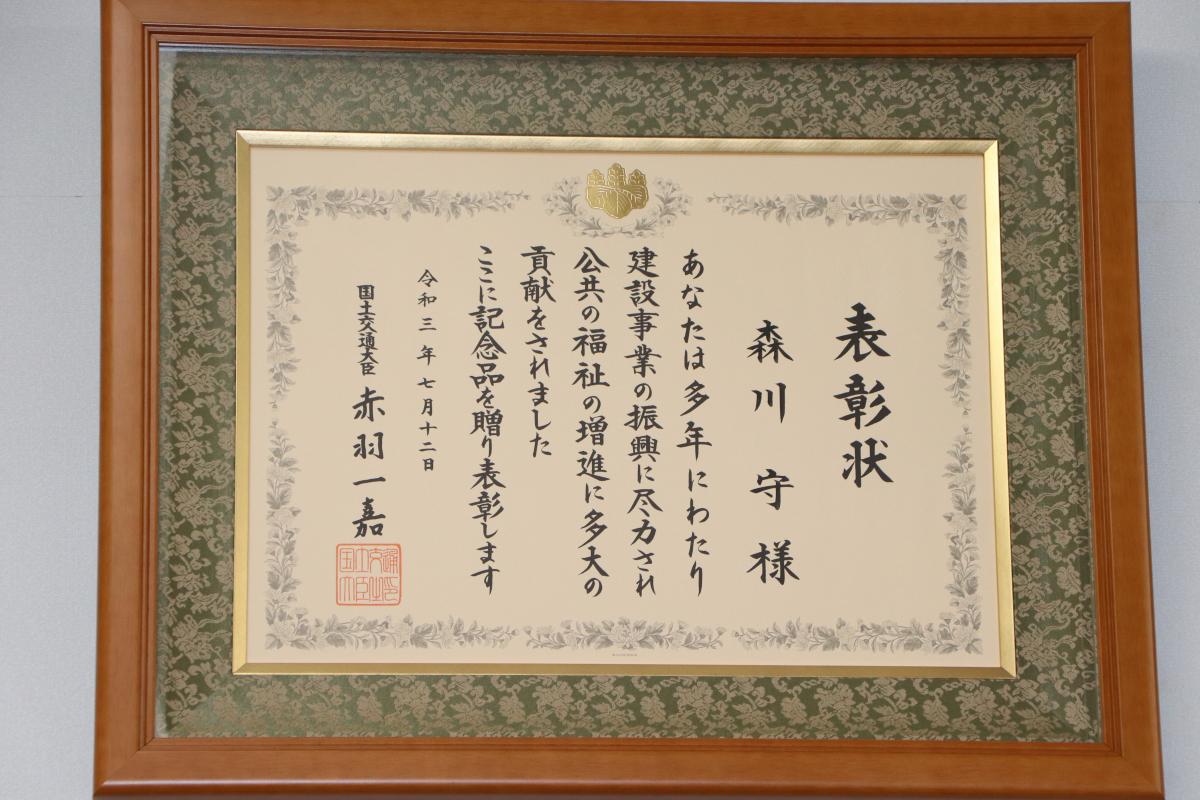 表彰状
森川守様
あなたは多年にわたり
建設事業の振興に尽力され
公共の福祉の増進に多大の
貢献をされました
ここに記念品を贈り表彰します
令和三年七月十二日
国土交通大臣 赤羽一嘉